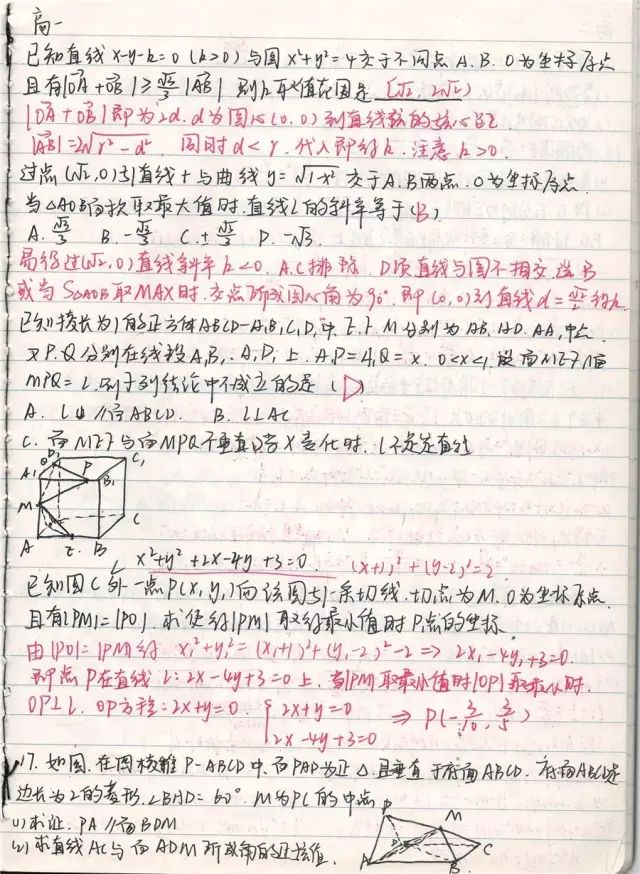 高一
已知直线 x-y-k=0 (k>0) 与圆 x²+y²=4 交于不同点 A.B. O为坐标原点
且有|OA+OB| ≥ √3/3 |AB| 则k取值范围是 [√2, 2√2)
|OA+OB| 即为2d. d为圆心(0,0)到直线的距离
|AB|=2√r²-d². 同时 d<r. 代入即得k. 注意 k>0.
过点(√2,0)引直线 l 与曲线 y=√1-x² 交于A.B两点. O为坐标原点.
当△AOB面积取最大值时. 直线l的斜率等于(B)
A. √3/3 B. -√3/3 C. ±√3/3 D. -√3.
易得过(√2,0)直线斜率k<0. A.C排除. D项直线与圆不相交. 选B
或当S△AOB取MAX时. 交点所成圆心角为90°. 即(0,0)到直线d=√2/2得k.
已知棱长为1的正方体ABCD-A₁B₁C₁D₁中. E.F.M分别为AB.AD.AA₁中点
又P.Q分别在线段A₁B₁. A₁D₁上. A₁P=A₁Q=x. 0<x<1. 设面MEF∩面
MPQ=l. 则下列结论中不成立的是 (D)
A. l∥面ABCD. B. l⊥AC
C. 面MEF与面MPQ不垂直 D. 当X变化时. l不是定直线
D₁ C₁
A₁ Q P B₁
M
C
A E B
x²+y²+2x-4y+3=0 (x+1)²+(y-2)²=2
已知圆C外一点P(x₁y₁)向该圆引一条切线. 切点为M. O为坐标原点.
且有|PM|=|PO|. 求使得|PM|取得最小值时P点的坐标.
由|PO|=|PM|得 x₁²+y₁²=(x₁+1)²+(y₁-2)²-2 => 2x₁-4y₁+3=0.
即点P在直线 l: 2x-4y+3=0 上. 当|PM|取最小值时|OP|取最小时.
OP⊥l. OP方程: 2x+y=0. { 2x+y=0 ⇒ P(-3/10, 3/5)
2x-4y+3=0
17. 如图. 在四棱锥P-ABCD中. 面PAD为正△. 且垂直于底面ABCD. 底面ABCD是
边长为2的菱形. ∠BAD=60°. M为PC的中点
(1) 求证. PA∥面BDM
(2) 求直线AC与面ADM所成角的正弦值.
P M
D C
A B